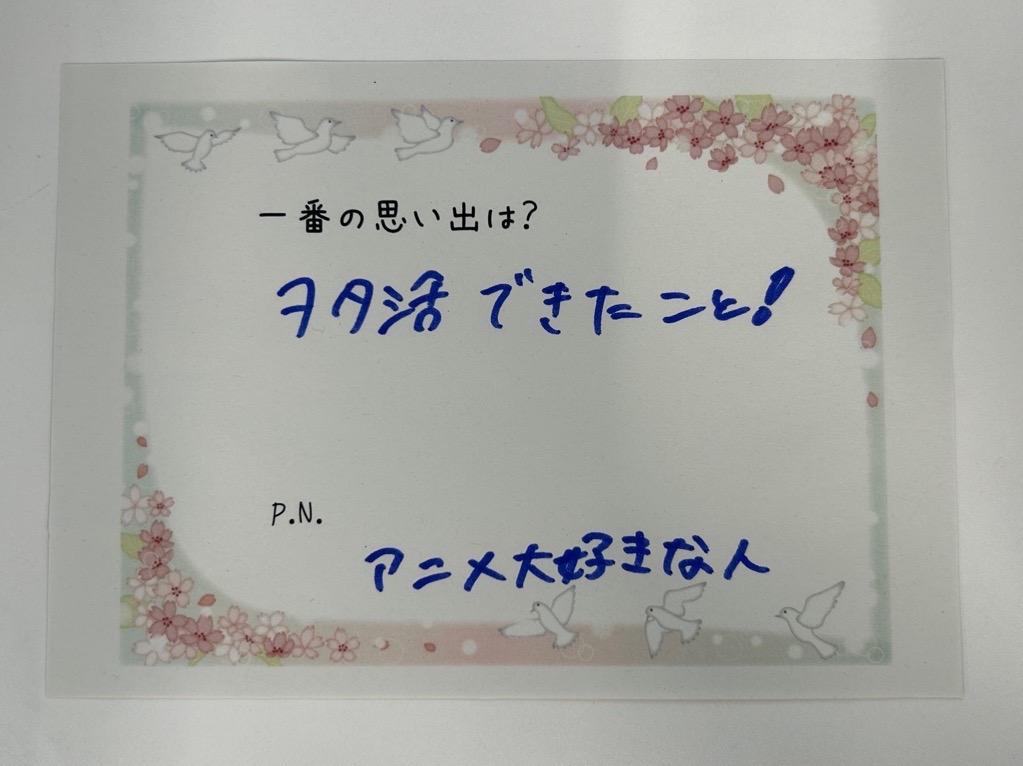 一番の思い出は?
ヲタ活できたこと!
P.N.
アニメ大好きな人